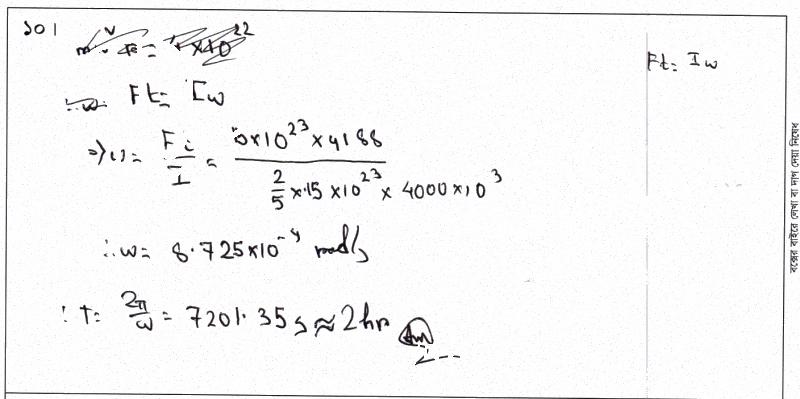 ১০।
Ft = Iω
Ft = Iω
⇒ ω = Ft/I = (5×10^23 × 4188)/(2/5 × 15 × 10^23 × 4000×10^3)
∴ ω = 8.725×10^-4 rad/s
∴ T = 2π/ω = 7201.35 s ≈ 2 hr (Am)
বক্সের বাইরে লেখা বা দাগ দেয়া নিষেধ